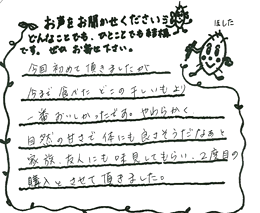 お声をお聞かせください
どんなことでも、ひとことでも結構
です。ぜひ お寄せ下さい。
ほした
今回初めて頂きましたが
今まで食べた どこの干しいもより
一番おいしかったです。やわらかく
自然の甘さで体にも良さそうだなぁと
家族、友人にも味見してもらい、2度目の
購入とさせて頂きました。